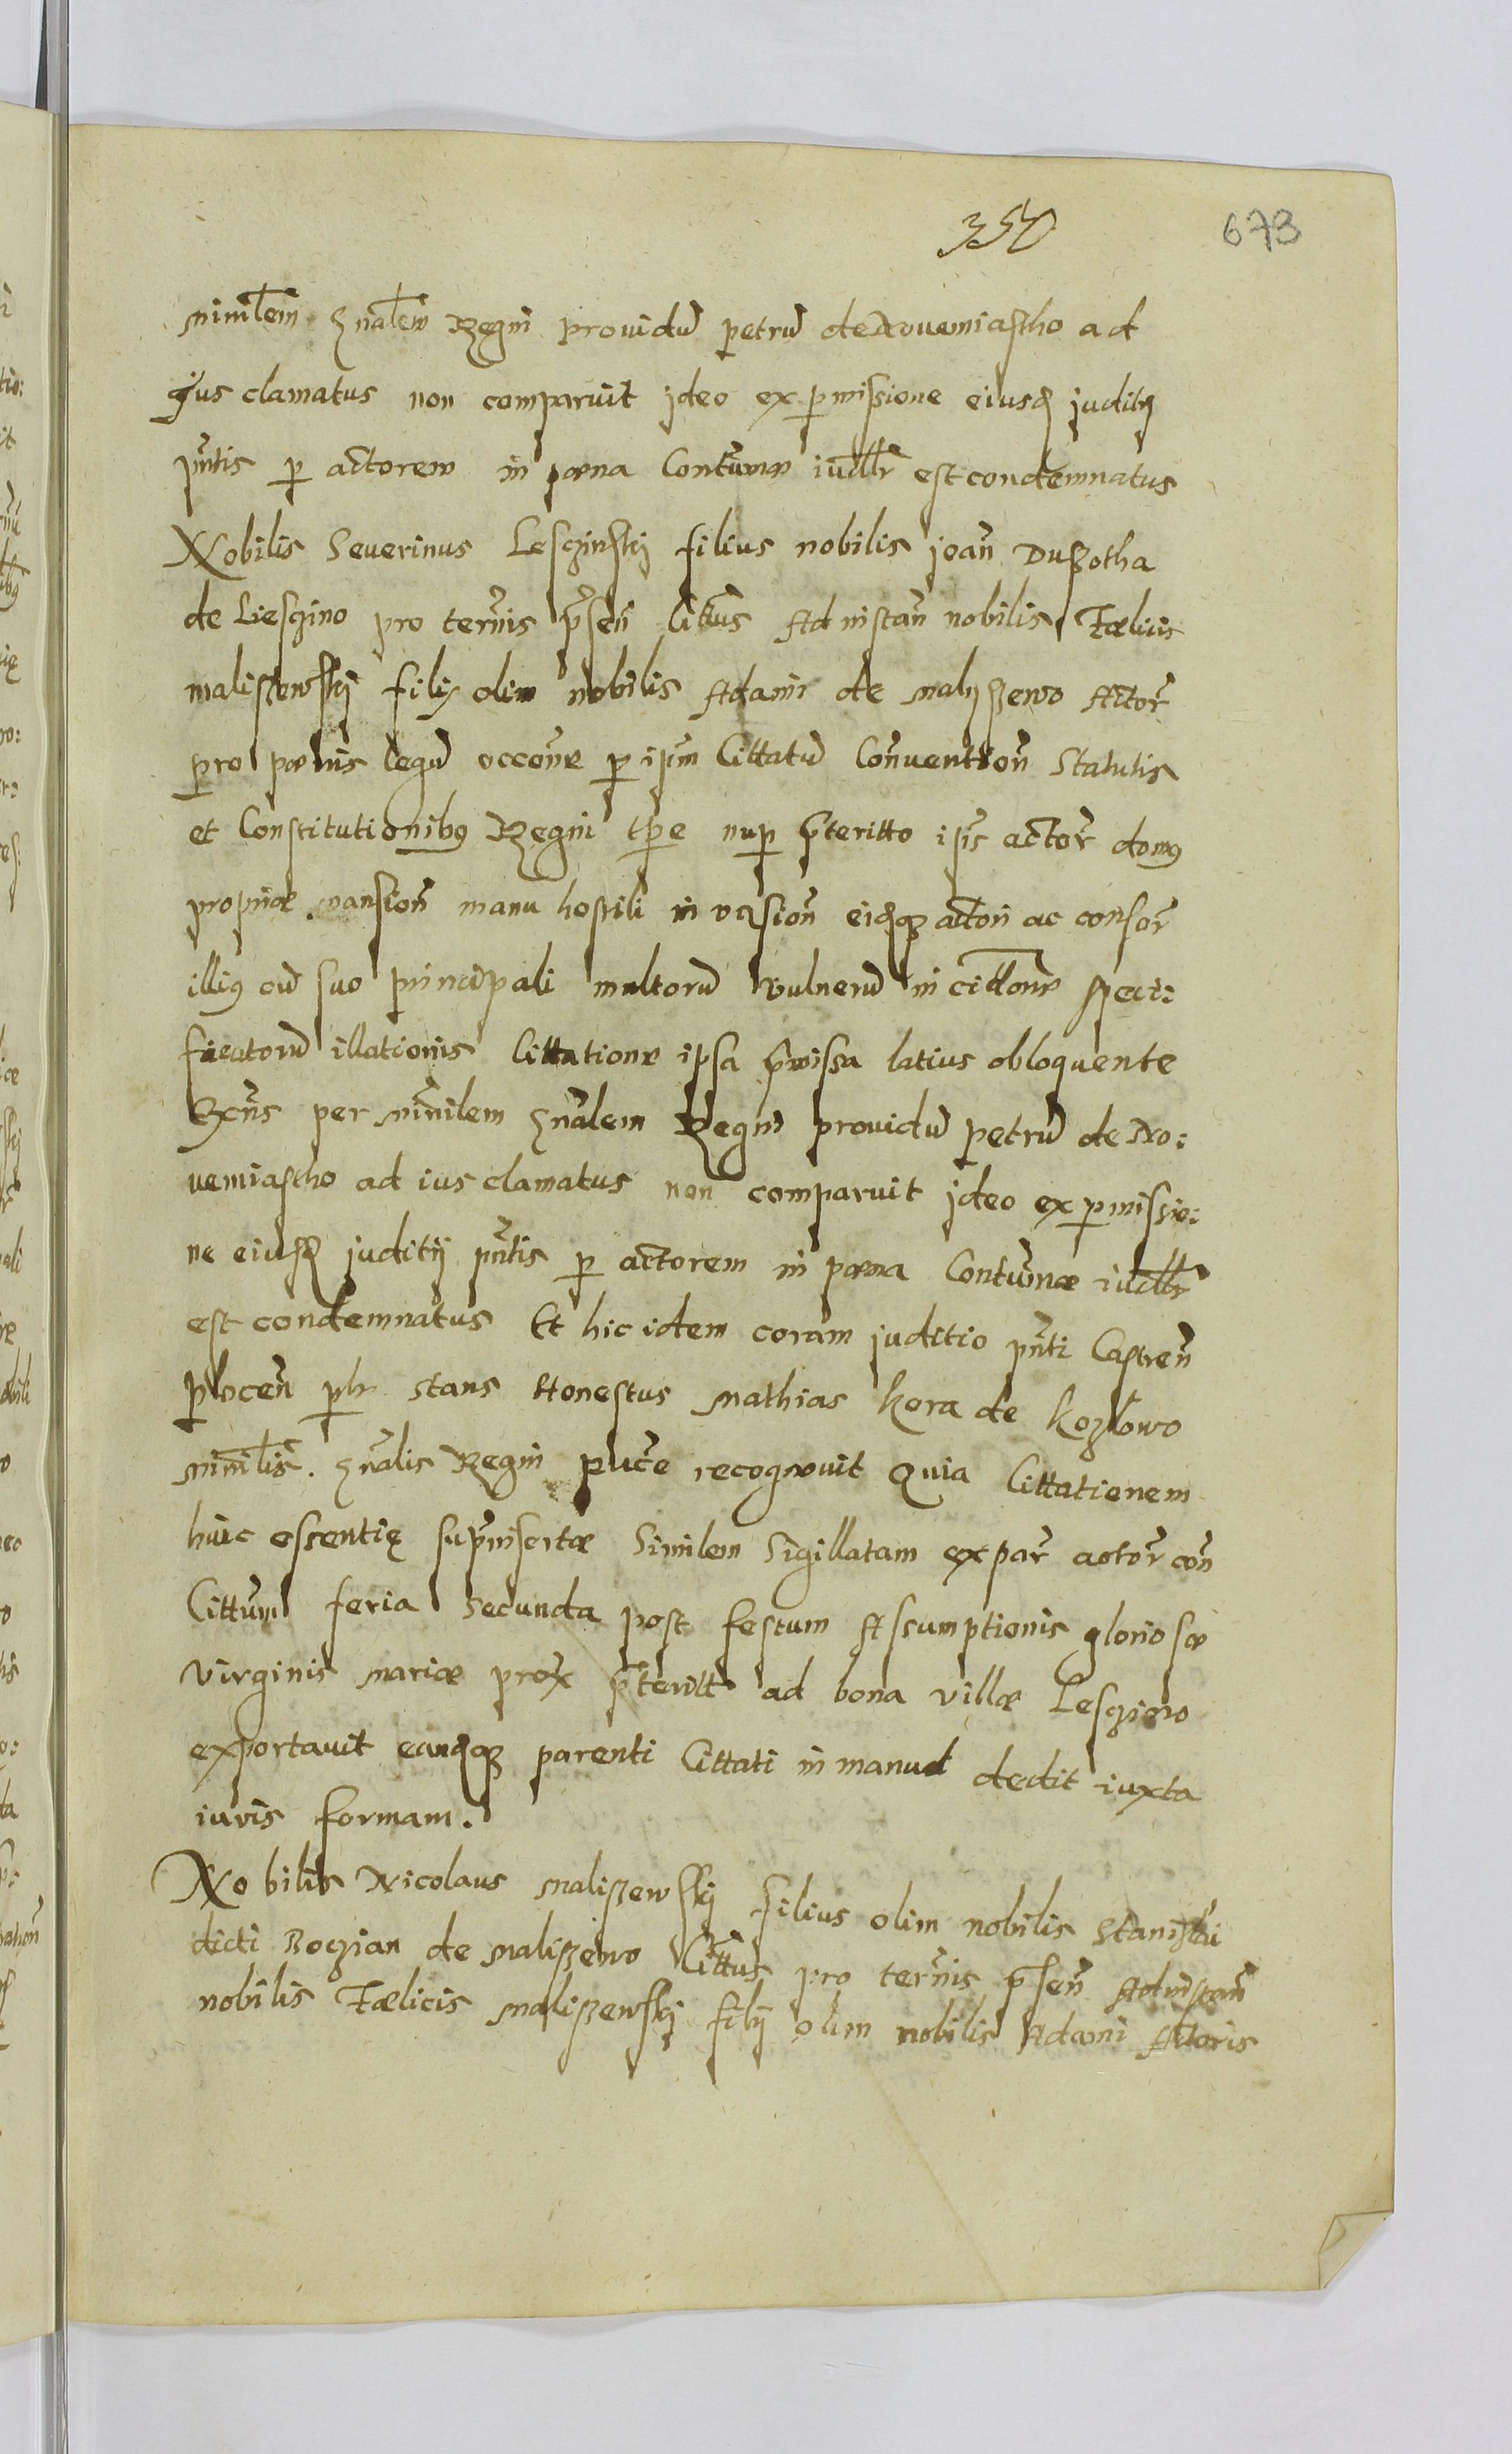 350 673
minrlem Gnalem Regni providu petru de Novemiastho ad
jus clamatus non comparuit ideo ex pmissione eiusd juditij
pntis p actorem in pœna Contumæ iudlr est condemnatus
Nobilis Severinus Lesczinskj filius nobilis joan Duszotha
de Liesczino pro ternis psen Cittus Ad instan nobilis Fœlicis
maliszewskj filij olim nobilis Adami de malyszewo Actor
pro pœnis legu occone p ipm Cittatu Convention Statutis
et Constitutionibq Regni tpe nup pteritto ipis actor domq
propriæ mansion manu hostili invasion eidqz actori ac consor
illiq cu suo principali multoru vulneru in cittone speci:
ficatoru illationis Cittatione ipsa pmissa latius obloquente
Rcns per minrilem Gnalem Regni providu petru de No:
vemiastho ad ius clamatus non comparuit ideo ex pmissio:
ne eiusd juditij pntis p actorem in pœna Contumæ iudlr
est condemnatus Et hic idem coram juditio pnti Castren
plocen plr stans Honestus Mathias Kora de Kozlowo
minrlis Gnalis Regni pluce recognovit Quia Cittationem
huic essentię supinsertæ Similem Sigillatam ex par actor con
Cittum feria Secunda post festum Assumptionis gloriosæ
virginis mariæ prox pteritt ad bona villæ Lesczino
exportavit eandqz parenti Cittati in manud dedit iuxta
iuris formam.
Nobilis Nicolaus Maliszewskj filius olim nobilis Stanislai
dicti Boczian de Maliszewo Cittus pro ternis psen Ad instan
nobilis Fœlicis Maliszewskj filij olim nobilis Adami Actoris